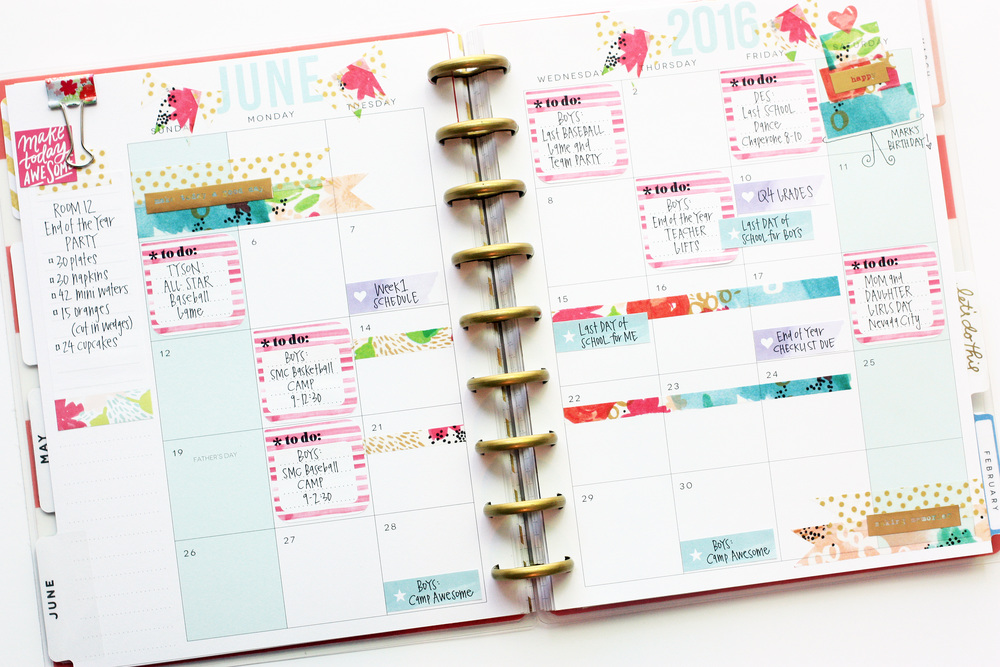 JUNE
SUNDAY
MONDAY
TUESDAY
make
today
AWESOME
ROOM 12
End of the Year
PARTY
30 plates
30 napkins
42 mini waters
15 oranges
(cut in wedges)
24 cupcakes
* to do:
TYSON:
ALL-STAR
Baseball
Game
6
7
Week 1
SCHEDULE
12
* to do:
BOYS:
SMC Basketball
CAMP
9-12:30
14
19
FATHER'S DAY
* to do:
BOYS:
SMC Baseball
CAMP
9-2:30
21
26
27
28
BOYS:
Camp Awesome
MAY
JUNE
2016
WEDNESDAY
THURSDAY
FRIDAY
SATURDAY
* to do:
BOYS:
Last BASEBALL
Game and
Team PARTY
2
* to do:
DES:
Last SCHOOL
Dance
Chaperone 8-10
happy
MARK'S
BIRTHDAY!
8
* to do:
BOYS:
End of the Year
TEACHER
GIFTS
10
Q4 GRADES
Last DAY of
SCHOOL for BOYS
11
15
Last DAY of
SCHOOL for ME
16
17
End of Year
CHECKLIST DUE
* to do:
MOM and
DAUGHTER
GIRLS DAY
Nevada City
22
23
24
25
29
30
BOYS:
Camp Awesome
let's do this
FEBRUARY